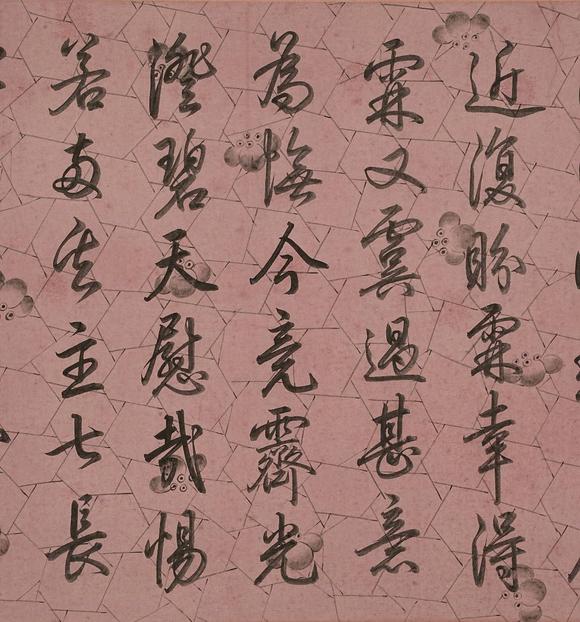 近復盼霖幸得
霖又虞過甚意
為憮今竟霽光
澄碧天慰哉惕
若主七長